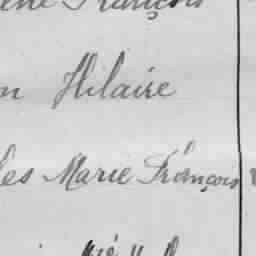 ené François
n Hilaire
les Marie François